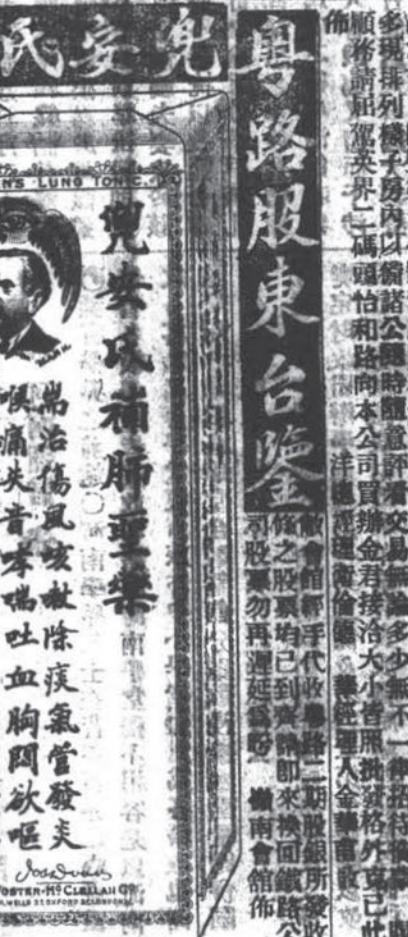 多現排列樣子房內以備諸公隨時隨意評看交易無論多少無不一律招待
顧務請屈駕英界二碼頭怡和路向本公司買辦金君接洽大小皆照批發格外克己此
佈
洋總經理 華經理人金
粵路股東台鑒
敝會館經手代收粵路二期股銀所發收
條之股票均已到齊請即來換回鐵路公
司股票勿再遲延為盼 嶺南會館佈
兜安氏
N'S LUNG TONIC.
兜安氏補肺聖藥
耑治傷風咳嗽除痰氣管發炎
喉痛失音哮喘吐血胸悶欲嘔
FOSTER-McCLELLAN Co
WELLS ST. OXFORD ST. LONDON